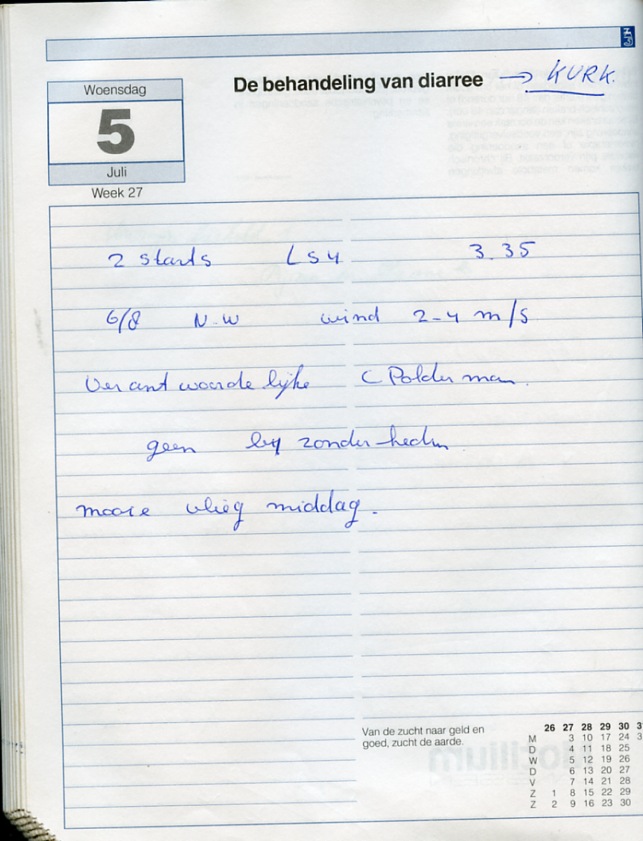 De behandeling van diarree → KURK.
Woensdag
5
Juli
Week 27
2 starts LS4 3.35
6/8 N-W wind 2-4 m/s
Verantwoordelijke C Polderman.
geen bijzonderheden
mooie vlieg middag.
Van de zucht naar geld en
goed, zucht de aarde.
26 27 28 29 30 3
M 3 10 17 24 3
D 4 11 18 25
W 5 12 19 26
D 6 13 20 27
V 7 14 21 28
Z 1 8 15 22 29
Z 2 9 16 23 30